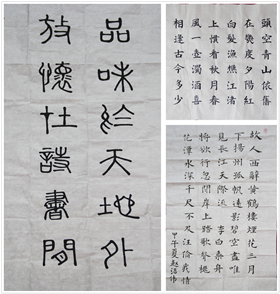 品味於天地外
放懷在詩書間
頭空青山依舊
在幾度夕陽紅
白髮漁樵江渚
上慣看秋月春
風一壺濁酒喜
相逢古今多少
故人西辭黃鶴樓煙花三月
下揚州孤帆遠影碧空盡唯
見長江天際流 李白乘舟
將欲行忽聞岸上踏歌聲桃
花潭水深千尺不及汪倫我情
甲午夏